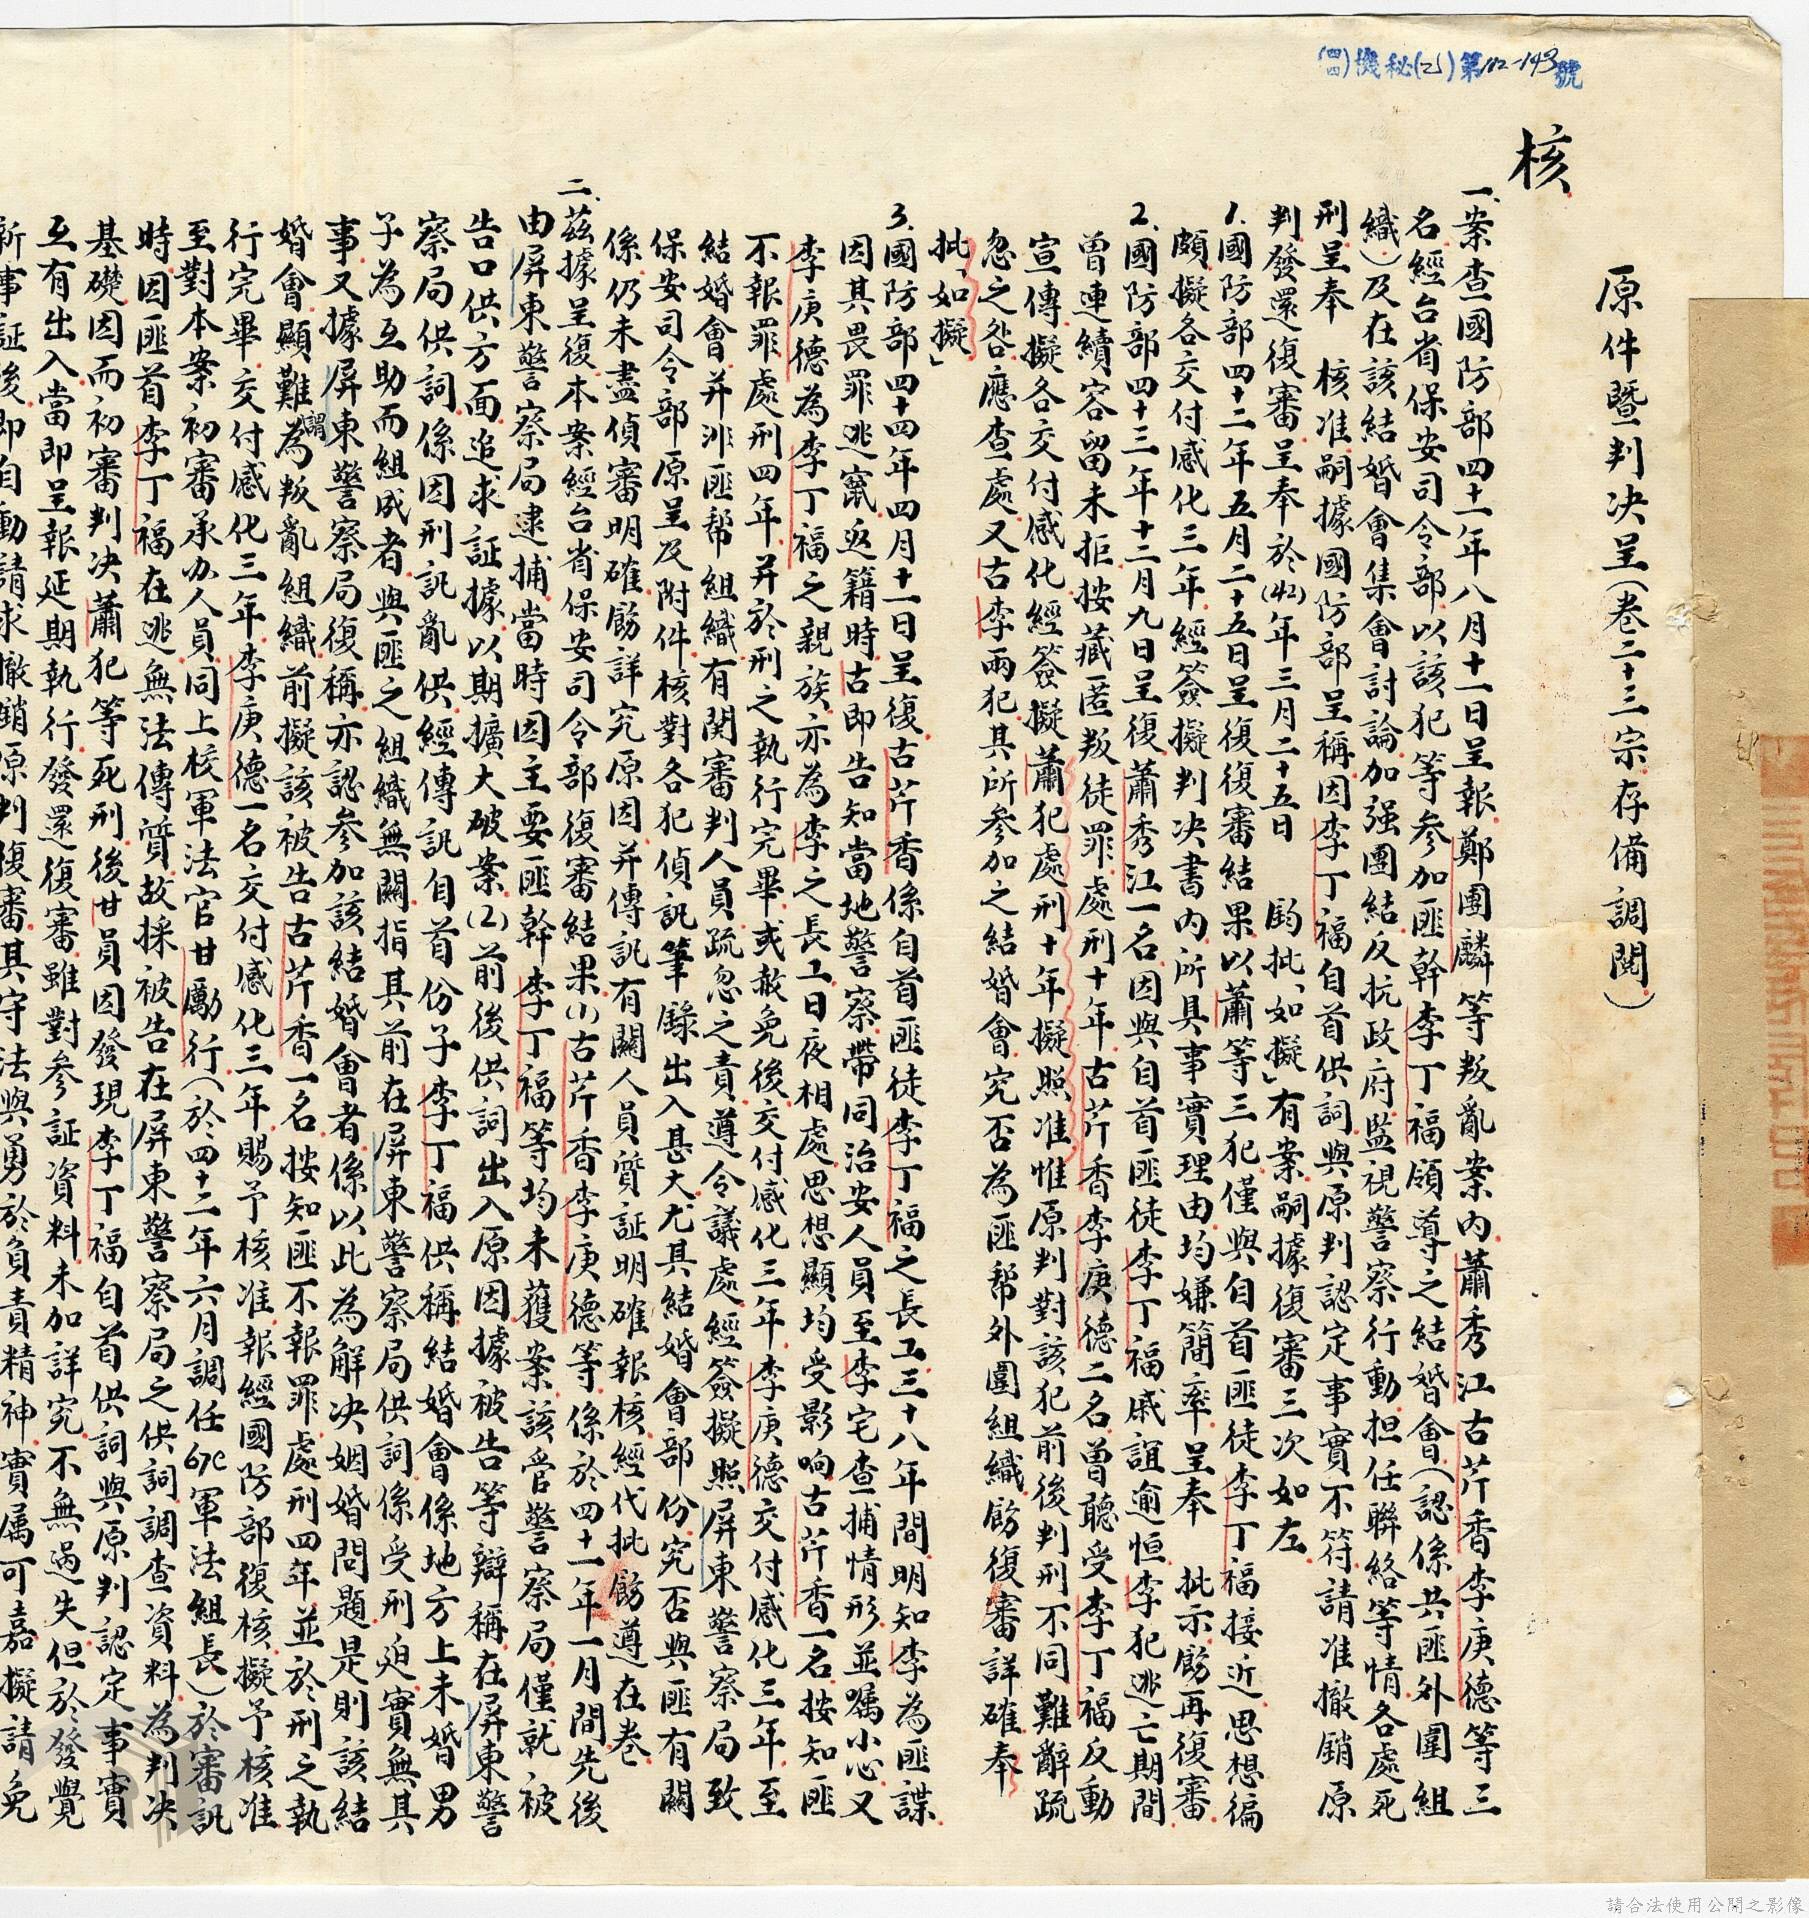 (四四)機秘(乙)第112-143號
核
原件暨判决呈(卷二十三宗存備調閱)
一、案查國防部四十一年八月十一日呈報鄭團麟等叛亂案內蕭秀江古芹香李庚德等三
名經台省保安司令部以該犯等參加匪幹李丁福領導之結婚會(認係共匪外圍組
織)及在該結婚會集會討論加强團結反抗政府監視警察行動担任聯絡等情各處死
刑呈奉 核准嗣據國防部呈稱因李丁福自首供詞與原判認定事實不符請准撤銷原
判發還復審呈奉於(42)年三月二十五日 鈞批「如擬」有案嗣據復審三次如左
1.國防部四十二年五月二十五日呈復復審結果以蕭等三犯僅與自首匪徒李丁福接近思想徧
頗擬各交付感化三年經簽擬判决書內所具事實理由均嫌簡率呈奉 批示飭再復審
2.國防部四十三年十二月九日呈復蕭秀江一名因與自首匪徒李丁福戚誼逾恒李犯逃亡期間
曾連續容留未拒按藏匿叛徒罪處刑十年古芹香李庚德二名曾聽受李丁福反動
宣傳擬各交付感化經簽擬蕭犯處刑十年擬照准惟原判對該犯前後判刑不同難辭疏
忽之咎應查處又古李兩犯其所參加之結婚會究否為匪帮外圍組織飭復審詳確奉
批「如擬」
3.國防部四十四年四月十一日呈復古芹香係自首匪徒李丁福之長工三十八年間明知李為匪諜
因其畏罪逃竄返籍時古即告知當地警察帶同治安人員至李宅查捕情形並囑小心又
李庚德為李丁福之親族亦為李之長工日夜相處思想顯均受影响古芹香一名按知匪
不報罪處刑四年并於刑之執行完畢或赦免後交付感化三年李庚德交付感化三年至
結婚會并非匪帮組織有関審判人員疏忽之責遵令議處經簽擬照屏東警察局致
保安司令部原呈及附件核對各犯偵訊筆錄出入甚大尤其結婚會部份究否與匪有關
係仍未盡偵審明確飭詳究原因并傳訊有關人員質証明確報核經代批飭遵在卷
二、茲據呈復本案經台省保安司令部復審結果(1)古芹香李庚德等係於四十一年一月間先後
由屏東警察局逮捕當時因主要匪幹李丁福等均未獲案該管警察局僅就被
告口供方面追求証據以期擴大破案(2)前後供詞出入原因據被告等辯稱在屏東警
察局供詞係因刑訊亂供經傳訊自首份子李丁福供稱結婚會係地方上未婚男
子為互助而組成者與匪之組織無關指其前在屏東警察局供詞係受刑迫實無其
事又據屏東警察局復稱亦認參加該結婚會者係以此為解决姻婚問題是則該結
婚會顯難謂為叛亂組織前擬該被告古芹香一名按知匪不報罪處刑四年並於刑之執
行完畢交付感化三年李庚德一名交付感化三年賜予核准報經國防部復核擬予核准
至對本案初審承办人員同上校軍法官甘勵行(於四十二年六月調任67C軍法組長)於審訊
時因匪首李丁福在逃無法傳質故採被告在屏東警察局之供詞調查資料為判决
基礎因而初審判决蕭犯等死刑後甘員因發現李丁福自首供詞與原判認定事實
互有出入當即呈報延期執行發還復審雖對參証資料未加詳究不無過失但於發覺
新事証後即自動請求撤銷原判復審其守法與勇於負責精神實屬可嘉擬請免
請合法使用公開之影像